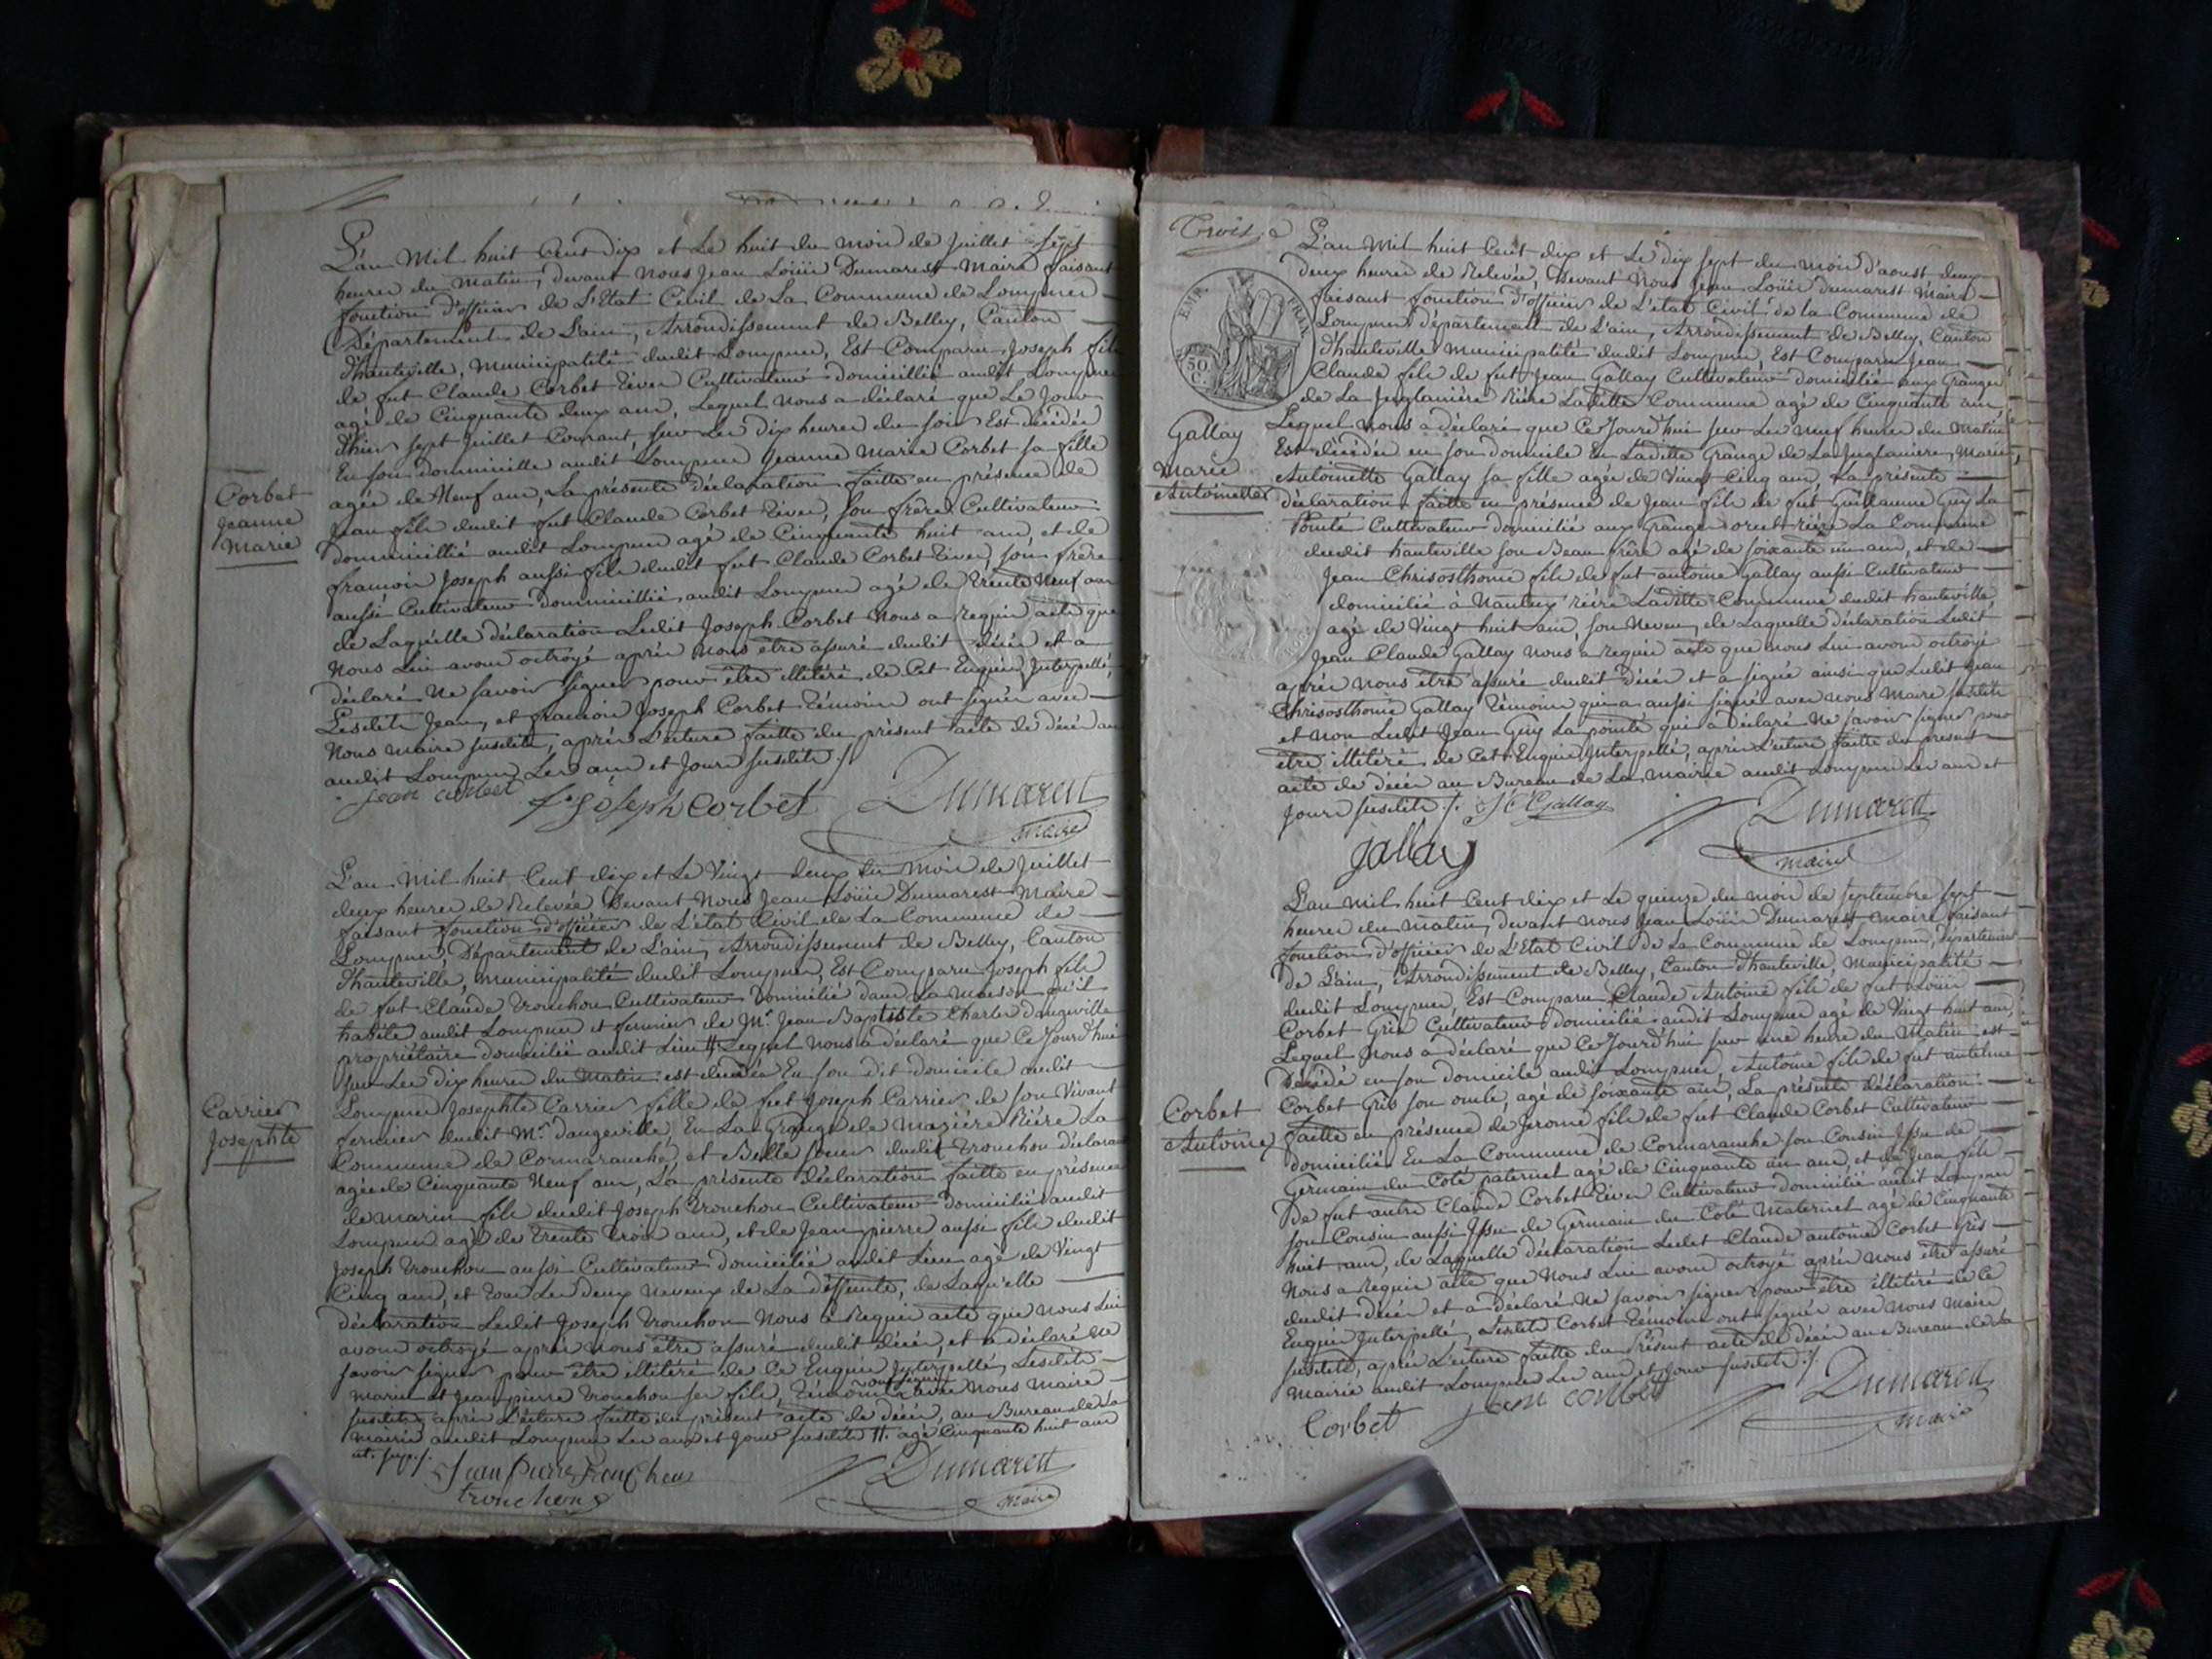 L'an Mil huit Cent dix et Le huit du mois de Juillet Sept
heures du Matin, devant Nous Jean Loüis Dumarest Maire faisant
fonction d'officier de L'Etat Civil de La Commune de Lompnes
Département de L'ain, Arrondissement de Belley, Canton
d'hauteville, Municipalité dudit Lompnes, Est Comparu Joseph fils
de fut Claude Corbet River Cultivateur domicillié audit Lompnes
agé de Cinquante deux ans, Lequel nous a déclaré que Le Jour
d'hier sept Juillet Courant, sur Les dix heures du soir Est décédée
En son domicille audit Lompnes Jeanne Marie Corbet sa fille
agée de Neuf ans, La présente déclaration faitte en présence de
Jean fils dudit fut Claude Corbet River, son frère Cultivateur
Corbet
Jeanne
Marie
domicillié audit Lompnes agé de Cinquante huit ans, et de
francois Joseph aussi fils dudit fut Claude Corbet River, son frère
aussi Cultivateur domicillié audit Lompnes agé de trente Neuf ans
de Laquelle déclaration Ledit Joseph Corbet Nous a requis acte que
Nous Lui avons octroyé après Nous être assuré dudit décès et a
déclaré Ne savoir signer pour être illitéré de Cet Enquis Interpellé,
Lesdits Jean, et francois Joseph Corbet témoins ont signés avec
Nous Maire susdits, après L'ecture faitte du présent acte de décès au
audit Lompnes Les an et Jour susdits ./.
Jean corbet f.s Joseph Corbet Dumarest
Maire
L'an Mil huit Cent dix et Le Vingt deux du Mois de Juillet
deux heures de Relevée Devant Nous Jean Loüis Dumarest Maire
faisant fonction d'officier de L'état Civil de La Commune de
Lompnes, Département de L'ain, Arrondissement de Belley, Canton
d'hauteville, Municipalité dudit Lompnes, Est Comparu Joseph fils
de fut Claude Tronchon Cultivateur Domicilié dans La Maison qu'il
habite audit Lompnes et fermier de Mr. Jean Baptiste Charles Daugeville
propriétaire domicilié audit Lieu # Lequel Nous a déclaré que Ce Jourd'hui
sur Les dix heures du Matin est décédée En son dit domicile audit
Carrier
Josephte
Lompnes Josephte Carrier fille de fut Joseph Carrier de son Vivant
fermier dudit Mr. daugeville En La Grange de Mazière Riére La
Commune de Cormaranche, et Belle soeur dudit Tronchon déclarant
agée de Cinquante Neuf ans, La présente déclaration faitte en présence
de Marin fils dudit Joseph Tronchon Cultivateur domicilié audit
Lompnes agé de trente trois ans, et de Jean pierre aussi fils dudit
Joseph Tronchon aussi Cultivateur domicilié audit Lieu agé de Vingt
Cinq ans, et tous Les deux Neveux de La deffunte, de Laquelle
déclaration Ledit Joseph Tronchon Nous a Requis acte que nous Lui
avons octroyé après nous être assuré dudit décès, et a déclaré Ne
savoir signer pour être illitéré de Ce Enquis Interpellé, Lesdits
Marin et Jean pierre Tronchon ses fils, témoins ont signés avec Nous Maire
susdits après L'ecture faitte du présent acte de décès, au Bureau de La
Mairie audit Lompnes Les an et Jour susdits #. agé Cinquante huit ans
ut. sup. ./.
Jean Pierre Tronchon
tronchon Dumarest
Maire
Trois
EMP. FRAN.
50
C.
L'an Mil huit Cent dix et Le dix sept du mois d'aoust deux
deux heures de Relevée, Devant Nous Jean Loüis Dumarest Maire
faisant fonction d'officier de L'état Civil de la Commune de
Lompnes département de L'ain, Arrondissement de Belley, Canton
d'hauteville Municipalité dudit Lompnes, Est Comparu Jean
Claude fils de fut Jean Gallay Cultivateur domicilié aux Granges
de La Juglanière Riére Laditte Commune agé de Cinquante ans,
Lequel Nous a déclaré que Ce Jourd'hui sur Les Neuf heures du Matin
Est décédée en son domicile En Laditte Grange de La Juglanière, Marie
Gallay
Marie
Antoinette
Antoinette Gallay sa fille agée de Vingt Cinq ans, La présente
déclaration faitte en présence de Jean fils de fut Guillaume Guy La
Pointe Cultivateur domicilié aux Granges riére La Commune
dudit hauteville son Beau frère agé de soixante un ans, et de
Jean Chrisosthome fils de fut antoine Gallay aussi Cultivateur
domicilié à Nantuy riére Laditte Commune dudit hauteville
agé de Vingt huit ans, son Neveu, de Laquelle déclaration Ledit
Jean Claude Gallay Nous a requis acte que nous Lui avons octroyé
après nous être assuré dudit décès et a signé ainsi que Ledit Jean
Chrisosthome Gallay témoin qui a aussi signé avec Nous Maire susdits
et Non Ledit Jean Guy La pointe qui a déclaré Ne savoir signer pour
être illitéré de Cet Enquis Interpellé, après L'ecture faitte du présent
acte de décès au Bureau de La Mairie audit Lompnes Les an et
Jour susdits ./. J C Gallay
gallay Dumarest
Maire
L'an Mil huit Cent dix et Le quinze du mois de septembre sept
heures du Matin, devant nous Jean Loüis Dumarest Maire faisant
fonction d'officier de L'Etat Civil de La Commune de Lompnes, Département
de L'ain, Arrondissement de Belley, Canton d'hauteville, Municipalité
dudit Lompnes, Est Comparu Claude Antoine fils de fut Loüis
Corbet Gris Cultivateur domicilié audit Lompnes agé de Vingt huit ans,
Lequel Nous a déclaré que Ce Jourd'hui sur une heure du Matin est
Décédé en son domicile audit Lompnes, Antoine fils de fut antelme
Corbet Gris son oncle, agé de soixante ans, La présente déclaration
Corbet
Antoine
faitte en présence de Jerome fils de fut Claude Corbet Cultivateur
domicilié En La Commune de Cormaranche son Cousin Issu de
Germain du Coté paternel agé de Cinquante un ans, et de Jean fils
De fut autre Claude Corbet River Cultivateur domicilié audit Lompnes
son Cousin aussi Issu de Germain du Coté Maternel agé de Cinquante
huit ans, de Laquelle déclaration Ledit Claude antoine Corbet Gris
Nous a requis acte que Nous Lui avons octroyé après nous être assuré
dudit décès et a déclaré Ne savoir signer pour être illitéré de Ce
Enquis Interpellé, Lesdits Corbet témoins ont signés avec Nous Maire
susdits, après L'ecture faitte du Présent acte de décès au Bureau de La
Mairie audit Lompnes Les an et Jour susdits ./.
Corbet Jean corbet Dumarest
Maire